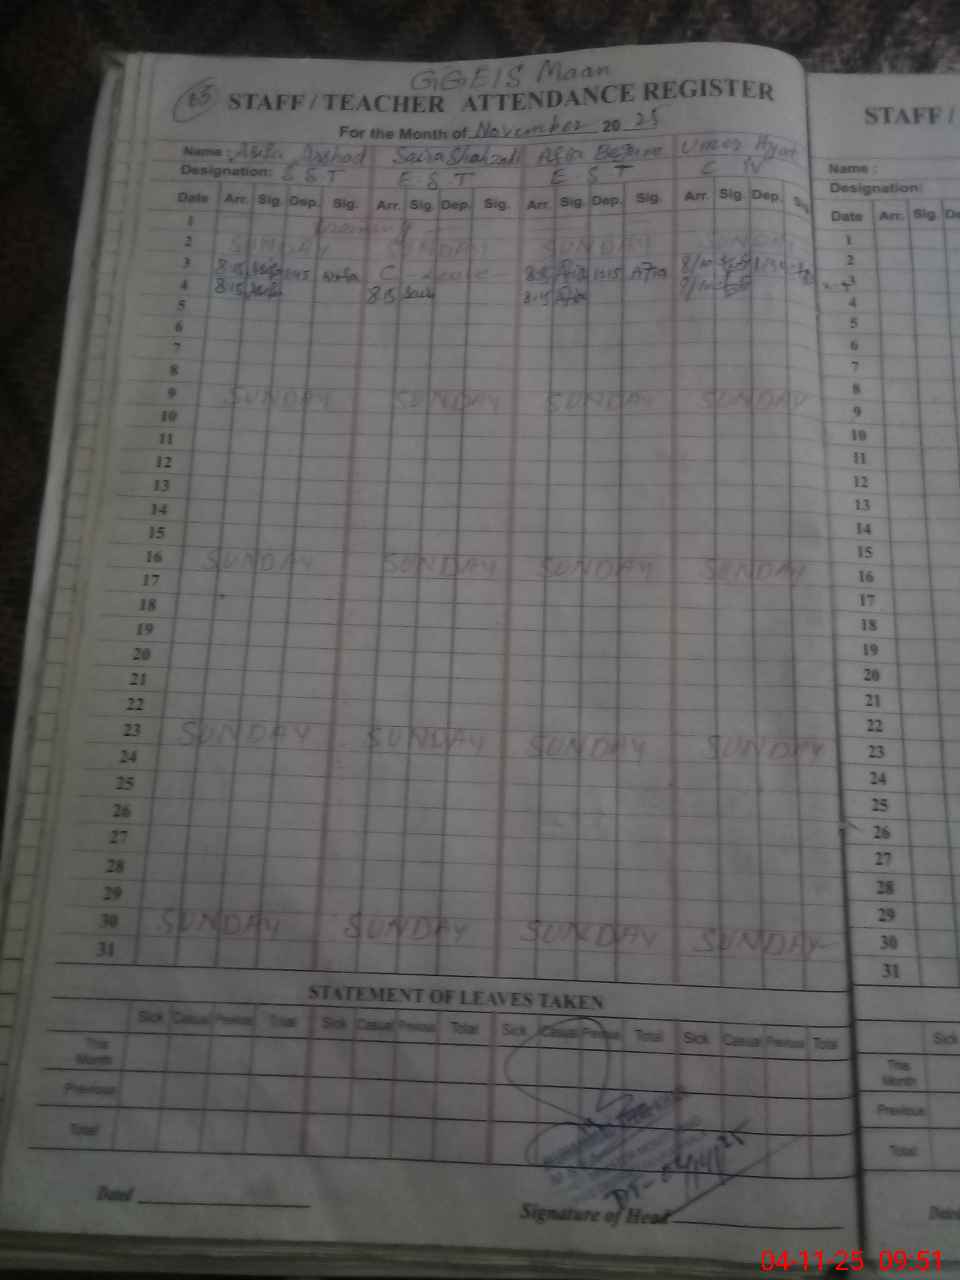 GGEIS Maan
63
STAFF / TEACHER ATTENDANCE REGISTER
For the Month of November 2025
Name : Arshad Saira Shahzadi Afia Umar Hyat
Designation: E S T E. S. T E. S T C IV
Date Arr. Sig. Dep. Sig. Arr. Sig. Dep. Sig. Arr. Sig. Dep. Sig. Arr. Sig. Dep. Sig.
1
2 SUNDAY SUNDAY SUNDAY SUNDAY
3 8:15 C Leave 8:15 Afia Afia
4 8:15 8:15 Saira 8:15 Afia
5
6
7
8
9 SUNDAY SUNDAY SUNDAY SUNDAY
10
11
12
13
14
15
16 SUNDAY SUNDAY SUNDAY SUNDAY
17
18
19
20
21
22
23 SUNDAY SUNDAY SUNDAY SUNDAY
24
25
26
27
28
29
30 SUNDAY SUNDAY SUNDAY SUNDAY
31
STATEMENT OF LEAVES TAKEN
Sick Casual Previous Total Sick Casual Previous Total Sick Casual Previous Total Sick Casual Previous Total
This Month
Previous
Total
Dated
Signature of Head
STAFF /
Name :
Designation:
Date Arr. Sig. De
1
2
3
4
5
6
7
8
9
10
11
12
13
14
15
16
17
18
19
20
21
22
23
24
25
26
27
28
29
30
31
Sick
This Month
Previous
Total
04-11-25 09:51